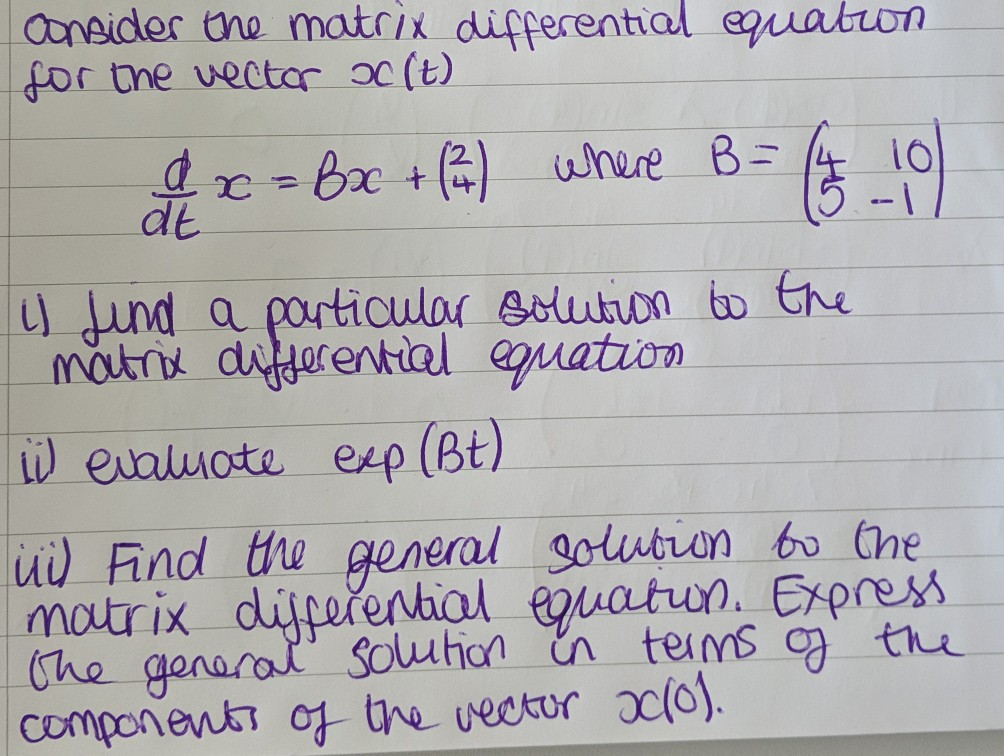 Consider the matrix differential equation
for the vector x(t)
d/dt x = Bx + (2 4) where B = (4 10
5 -1)
i) find a particular solution to the
matrix differential equation
ii) evaluate exp(Bt)
iii) Find the general solution to the
matrix differential equation. Express
the general solution in terms of the
components of the vector x(0).